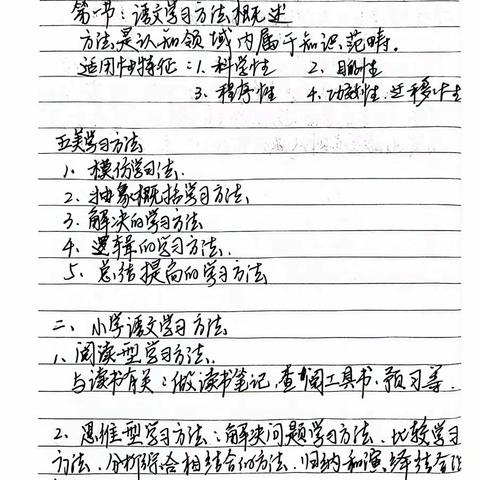 第一节：语文学习方法概述
方法是认知领域内属于知识范畴。
适用性特征：1、科学性 2、目的性
3、程序性 4、功效性、迁移性
五类学习方法
1、模仿学习法、
2、抽象概括学习方法、
3、解决的学习方法
4、逻辑的学习方法、
5、总结提高的学习方法
二、小学语文学习方法
1、阅读型学习方法、
与读书有关：做读书笔记、查阅工具书、预习等、
2、思维型学习方法：解决问题学习方法、比较学习
方法、分析综合相结合的方法、归纳和演绎结合